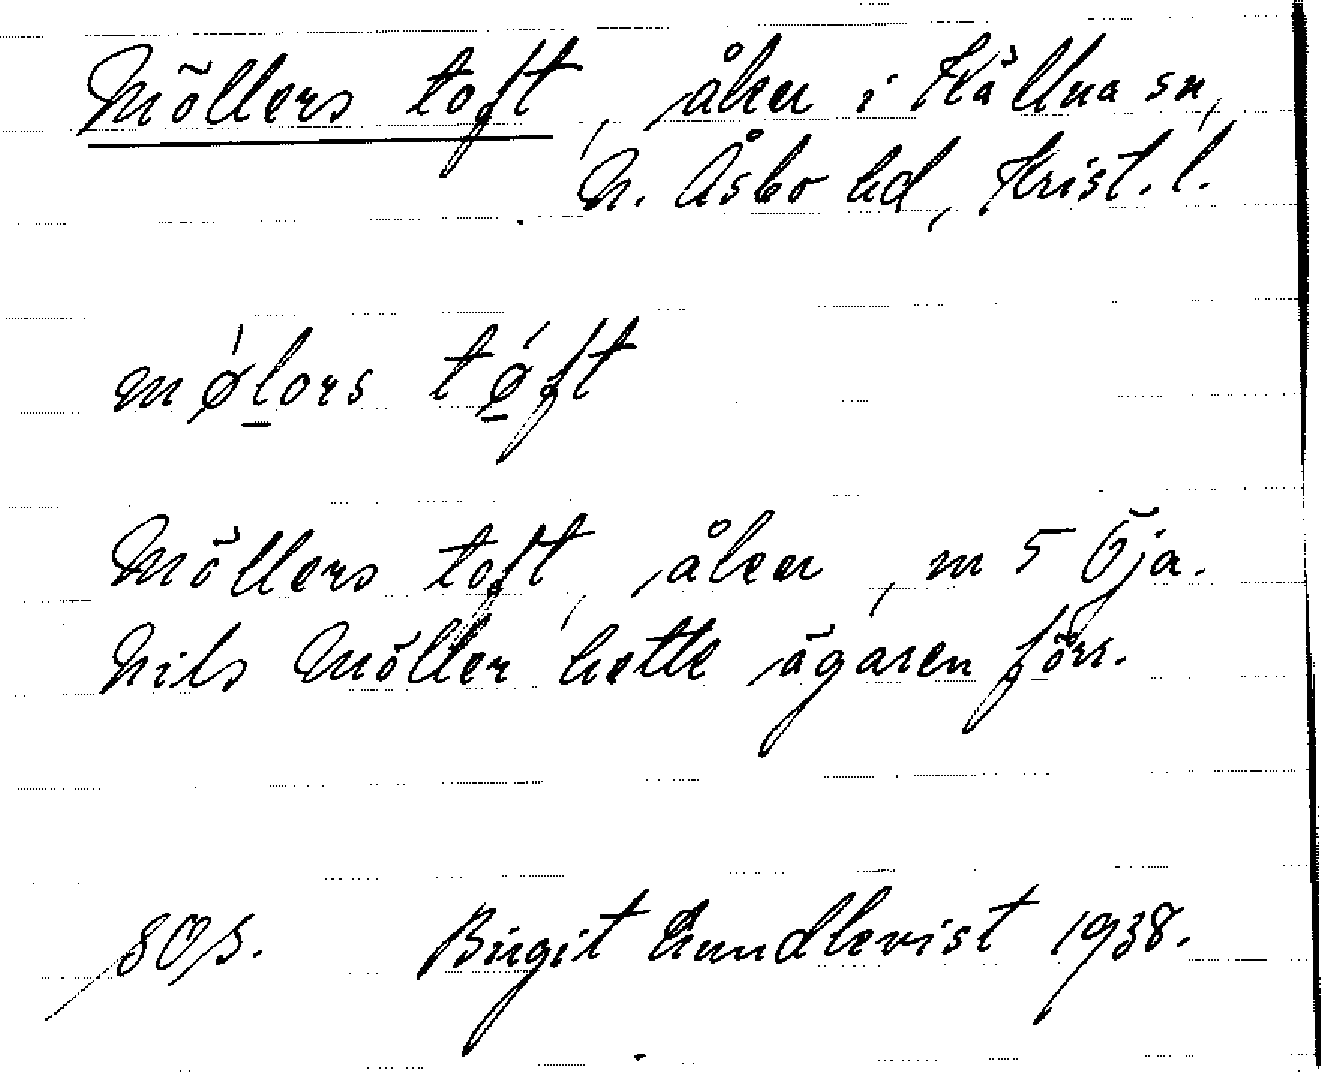 Möllers toft, åker i Källna sn,
N. Åsbo hd, Krist. l.
mø̀lors tǿft
Möllers toft, åker, m 5 Öja.
Nils Möller hette ägaren förr.
SOS. Birgit Lundkvist 1938.